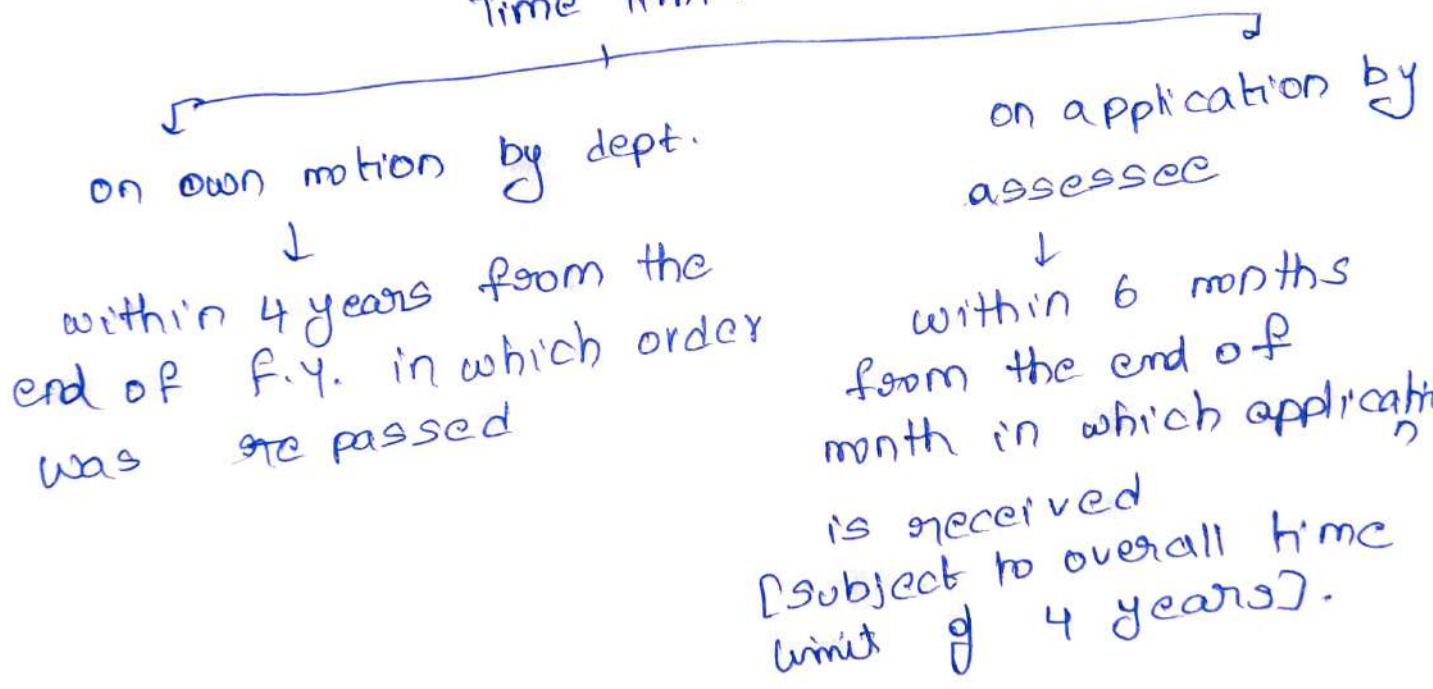 Time
on own motion by dept.
within 4 years from the
end of F.Y. in which order
was re passed
on application by
assessee
within 6 months
from the end of
month in which application
is received
[Subject to overall time
limit of 4 years].